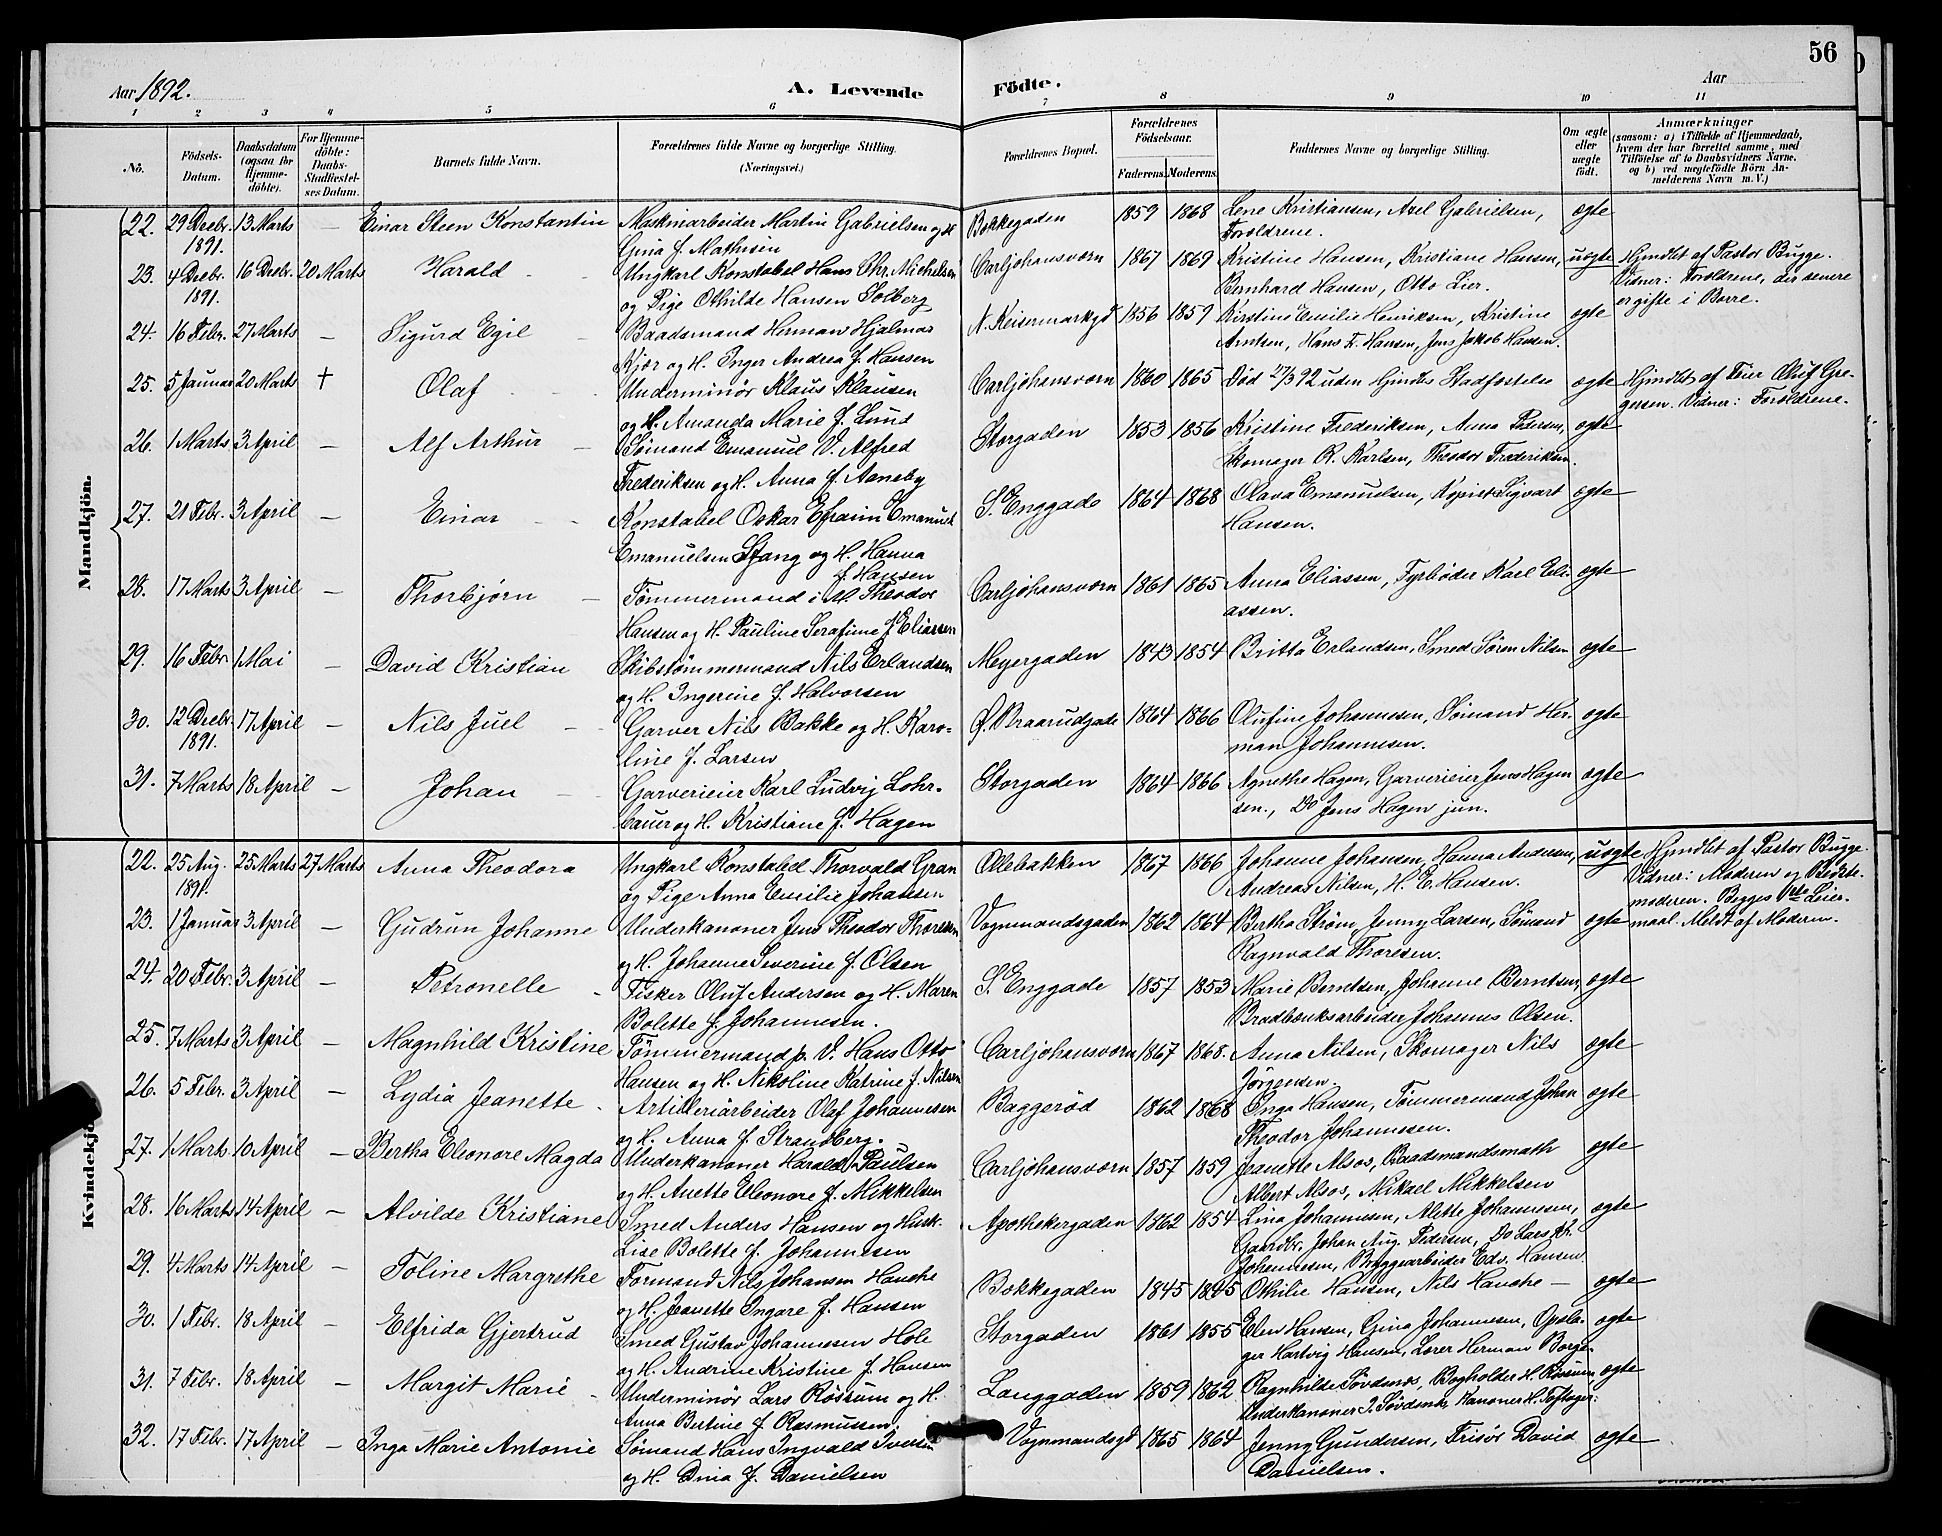 56
Aar 1892.
A. Levende Födte.
Aar
1 2 3 4 5 6 7 8 9 10 11
No.
Födsels-Datum.
Daabsdatum (ogsaa for Hjemme-döbte).
For Hjemme-döbte: Daabs-Stadfæstelses Datum.
Barnets fulde Navn.
Forældrenes fulde Navne og borgerlige Stilling. (Næringsvei.)
Forældrenes Bopæl.
Forældrenes Födselsaar.
Faderens. Moderens.
Faddernes Navne og borgerlige Stilling.
Om ægte eller uægte födt.
Anmærkninger
(saasom: a) i Tilfælde af Hjemmedaab, hvem der har forrettet samme, med Tilföielse af to Daabsvidners Navne, og b) ved uægtefödte Börn Anmelderens Navn m. V.)
Mandkjön.
22. 29 Decbr. 1891. 13 Marts — Einar Steen Konstantin Maskinarbeider Martin Gabrielsen og H. Gina f. Mathisen Bakkegaden 1859 1868 Lene Kristiansen, Axel Gabrielsen, Forældrene. ægte
23. 4 Decbr. 1891. 16 Decbr. 20 Marts Harald Ungkarl Konstabel Hans Chr. Michelsen og Pige Othilde Hansen Solberg Carljohansværn 1867 1869 Kristine Hansen, Kristiane Hansen, Bernhard Hansen, Otto Lier. uægte Hjmdbt af Pastor Bugge. Vidner: Forældrene, der senere er gifte i Borre.
24. 16 Febr. 27 Marts — Sigurd Egil Baadsmand Herman Hjalmar Kjær og H. Inger Andrea f. Hansen N. Keisermarkgd 1856 1859 Kirstine Emilie Henriksen, Kristine Arntsen, Hans F. Hansen, Jens Jakob Hansen. ægte
25. 5 Januar 20 Marts † Olaf Underminör Klaus Klausen og H. Amanda Marie f. Lund Carljohansværn 1860 1865 Död 27/3 92 uden Hjmdbts Stadfæstelse ægte Hjmdbt af Feier Oluf Gregersen. Vidner: Forældrene.
26. 1 Marts 3 April — Alf Arthur Sömand Emanuel V. Alfred Frederiksen og H. Anna f. Aaneby Storgaden 1853 1856 Kristine Frederiksen, Anna Pedersen, Skomager R. Karlsen, Theodor Frederiksen. ægte
27. 21 Febr. 3 April — Einar Konstabel Oskar Efraim Emanuel Emanuelsen Stang og H. Hanna f. Hansen S. Enggade 1864 1868 Olava Emanuelsen, Kopist Sigvart Hansen. ægte
28. 17 Marts 3 April — Thorbjørn Tömmermand i M. Theodor Hansen og H. Pauline Serafine f. Eliassen Carljohansværn 1861 1865 Anna Eliassen, Fyrböder Karl Eliassen. ægte
29. 16 Febr. 1 Mai — David Kristian Skibstömmermand Nils Erlandsen og H. Ingerine f. Halvorsen Meyergaden 1843 1854 Britta Erlandsen, Smed Sören Nilsen ægte
30. 12 Decbr. 1891. 17 April — Nils Juel Garver Nils Bakke og H. Karoline f. Larsen Ø. Braarudgade 1864 1866 Olufine Johannesen, Sömand Herman Johannesen. ægte
31. 7 Marts 18 April — Johan Garverieier Karl Ludvig Lohrbauer og H. Kristiane f. Hagen Storgaden 1864 1866 Agnethe Hagen, Garverieier Jens Hagen sen., Do Jens Hagen jun. ægte
Kvindekjö
22. 25 Aug. 1891. 25 Marts 27 Marts Anna Theodora Ungkarl Konstabel Thorvald Gran og Pige Anna Emilie Johansen Ollebakken 1867 1866 Johanne Johansen, Hanna Andersen, Andreas Nilsen, H. E. Hansen. uægte Hjmdbt af Pastor Bugge. Vidner: Moderen og Bedstemoderen. Begges 1ste Leiermaal. Meldt af Moderen.
23. 1 Januar 3 April — Gudrun Johanne Underkanoner Jens Theodor Thoresen og H. Johanne Severine f. Olsen Vognmandsgaden 1862 1864 Bertha Ström, Jenny Larsen, Sömand Ragnvald Thoresen. ægte
24. 20 Febr. 3 April — Petronelle Fisker Oluf Andersen og H. Maren Bolette f. Johannesen. S. Enggade 1857 1853 Marie Berntsen, Johanne Berntsen, Bradbænksarbeider Johannes Olsen. ægte
25. 7 Marts 3 April — Magnhild Kristine Tömmermand p. V. Hans Otto Hansen og H. Nikoline Katrine f. Nilsen Carljohansværn 1867 1868. Anna Nilsen, Skomager Nils Jörgensen. ægte
26. 5 Febr. 3 April — Lydia Jeanette Artilleriarbeider Olaf Johannesen og H. Anna f. Strandberg. Baggeröd 1862 1868 Inga Hansen, Tömmermand Johan Theodor Johannesen. ægte
27. 1 Marts 10 April — Bertha Eleonore Magda Underkanoner Harald Paulsen og H. Anette Eleonore f. Mikkelsen Carljohansværn 1857 1859 Jeanette Alsos, Baadsmandsmath Albert Alsos, Mikael Mikkelsen ægte
28. 16 Marts 14 April — Alvilde Kristiane Smed Anders Hansen og Husk. Lise Bolette f. Johannesen Apothekergaden 1862 1854 Lina Johannesen, Alette Johannesen, Gaardbr. Johan Aug. Pedersen, Do Lars Kr. Johannesen, Bryggearbeider Edv. Hansen. ægte
29. 4 Marts 14 April — Toline Margrethe Formand Nils Johansen Hauche og H. Jeanette Ingare f. Hansen Bakkegaden 1845 1845 Othilie Hansen, Nils Hauche — ægte
30. 1 Febr. 18 April — Elfrida Gjertrud Smed Gustav Johannessen Hole og H. Andrine Kristine f. Hansen Storgaden 1861 1855 Elen Hansen, Gina Johannesen, Opslager Hartvig Hansen, Lærer Herman Borge. ægte
31. 7 Febr. 18 April — Margit Marie Underminör Lars Rössum og H. Anna Bertine f. Rasmussen Langgaden 1859 1862 Ragnhilde Sövdsnes, Bogholder H. Rössum Underkanoner J. Sövdsnes, Kanoner H. Toftager. ægte
32. 17 Febr. 17 April — Inga Marie Antonie Sömand Hans Ingvald Iversen og H. Dina f. Danielsen Vognmandsgd 1865 1864 Jenny Gundersen, Frisör David Danielsen. ægte